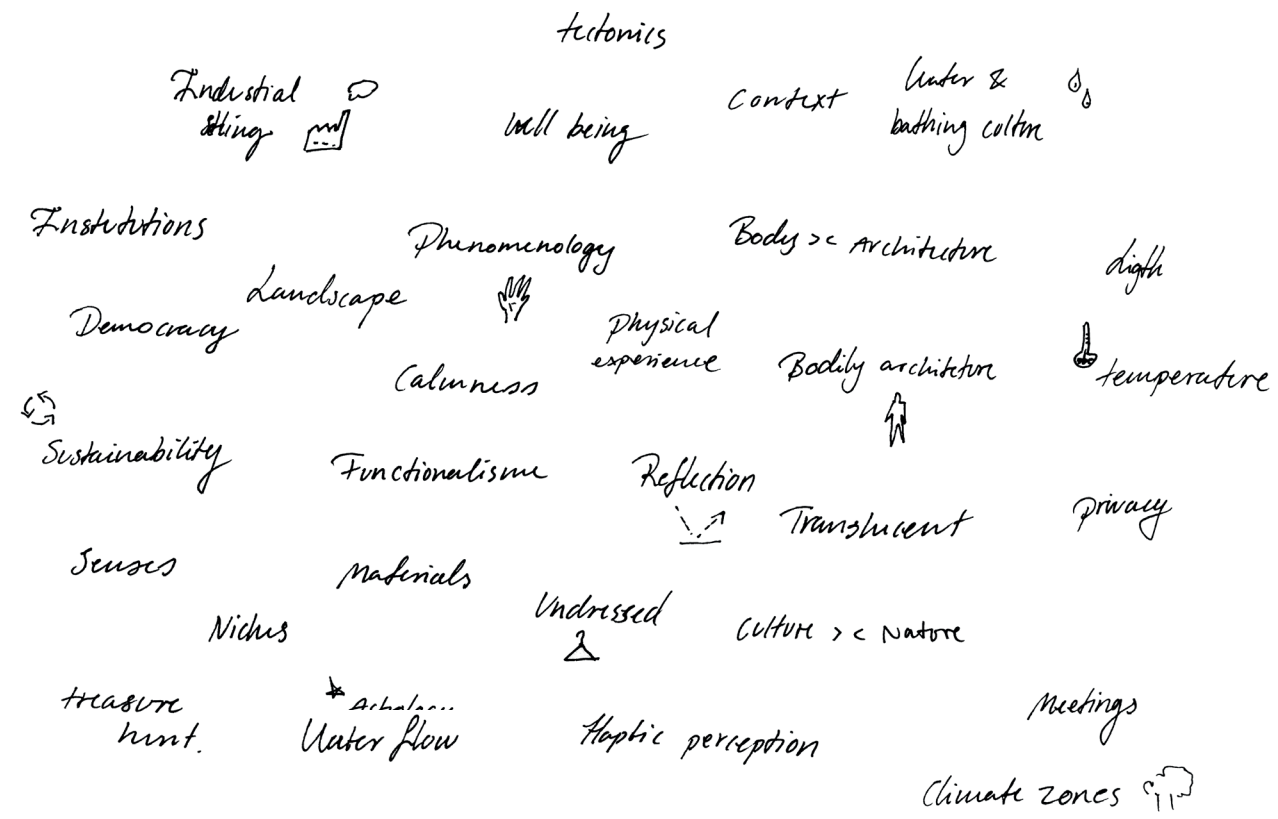 tectonics
Industial
stting
well being
Context
Water &
bathing culture
Institutions
Phenomenology
Body >< Architecture
Ligth
Landscape
Democracy
physical
experience
Bodily architecture
temperature
Calmness
Sustainability
Functionalisme
Reflection
Translucent
privacy
Senses
Materials
Undressed
Niches
Culture >< Nature
treasure
hunt.
Water flow
Haptic perception
Meetings
Climate zones